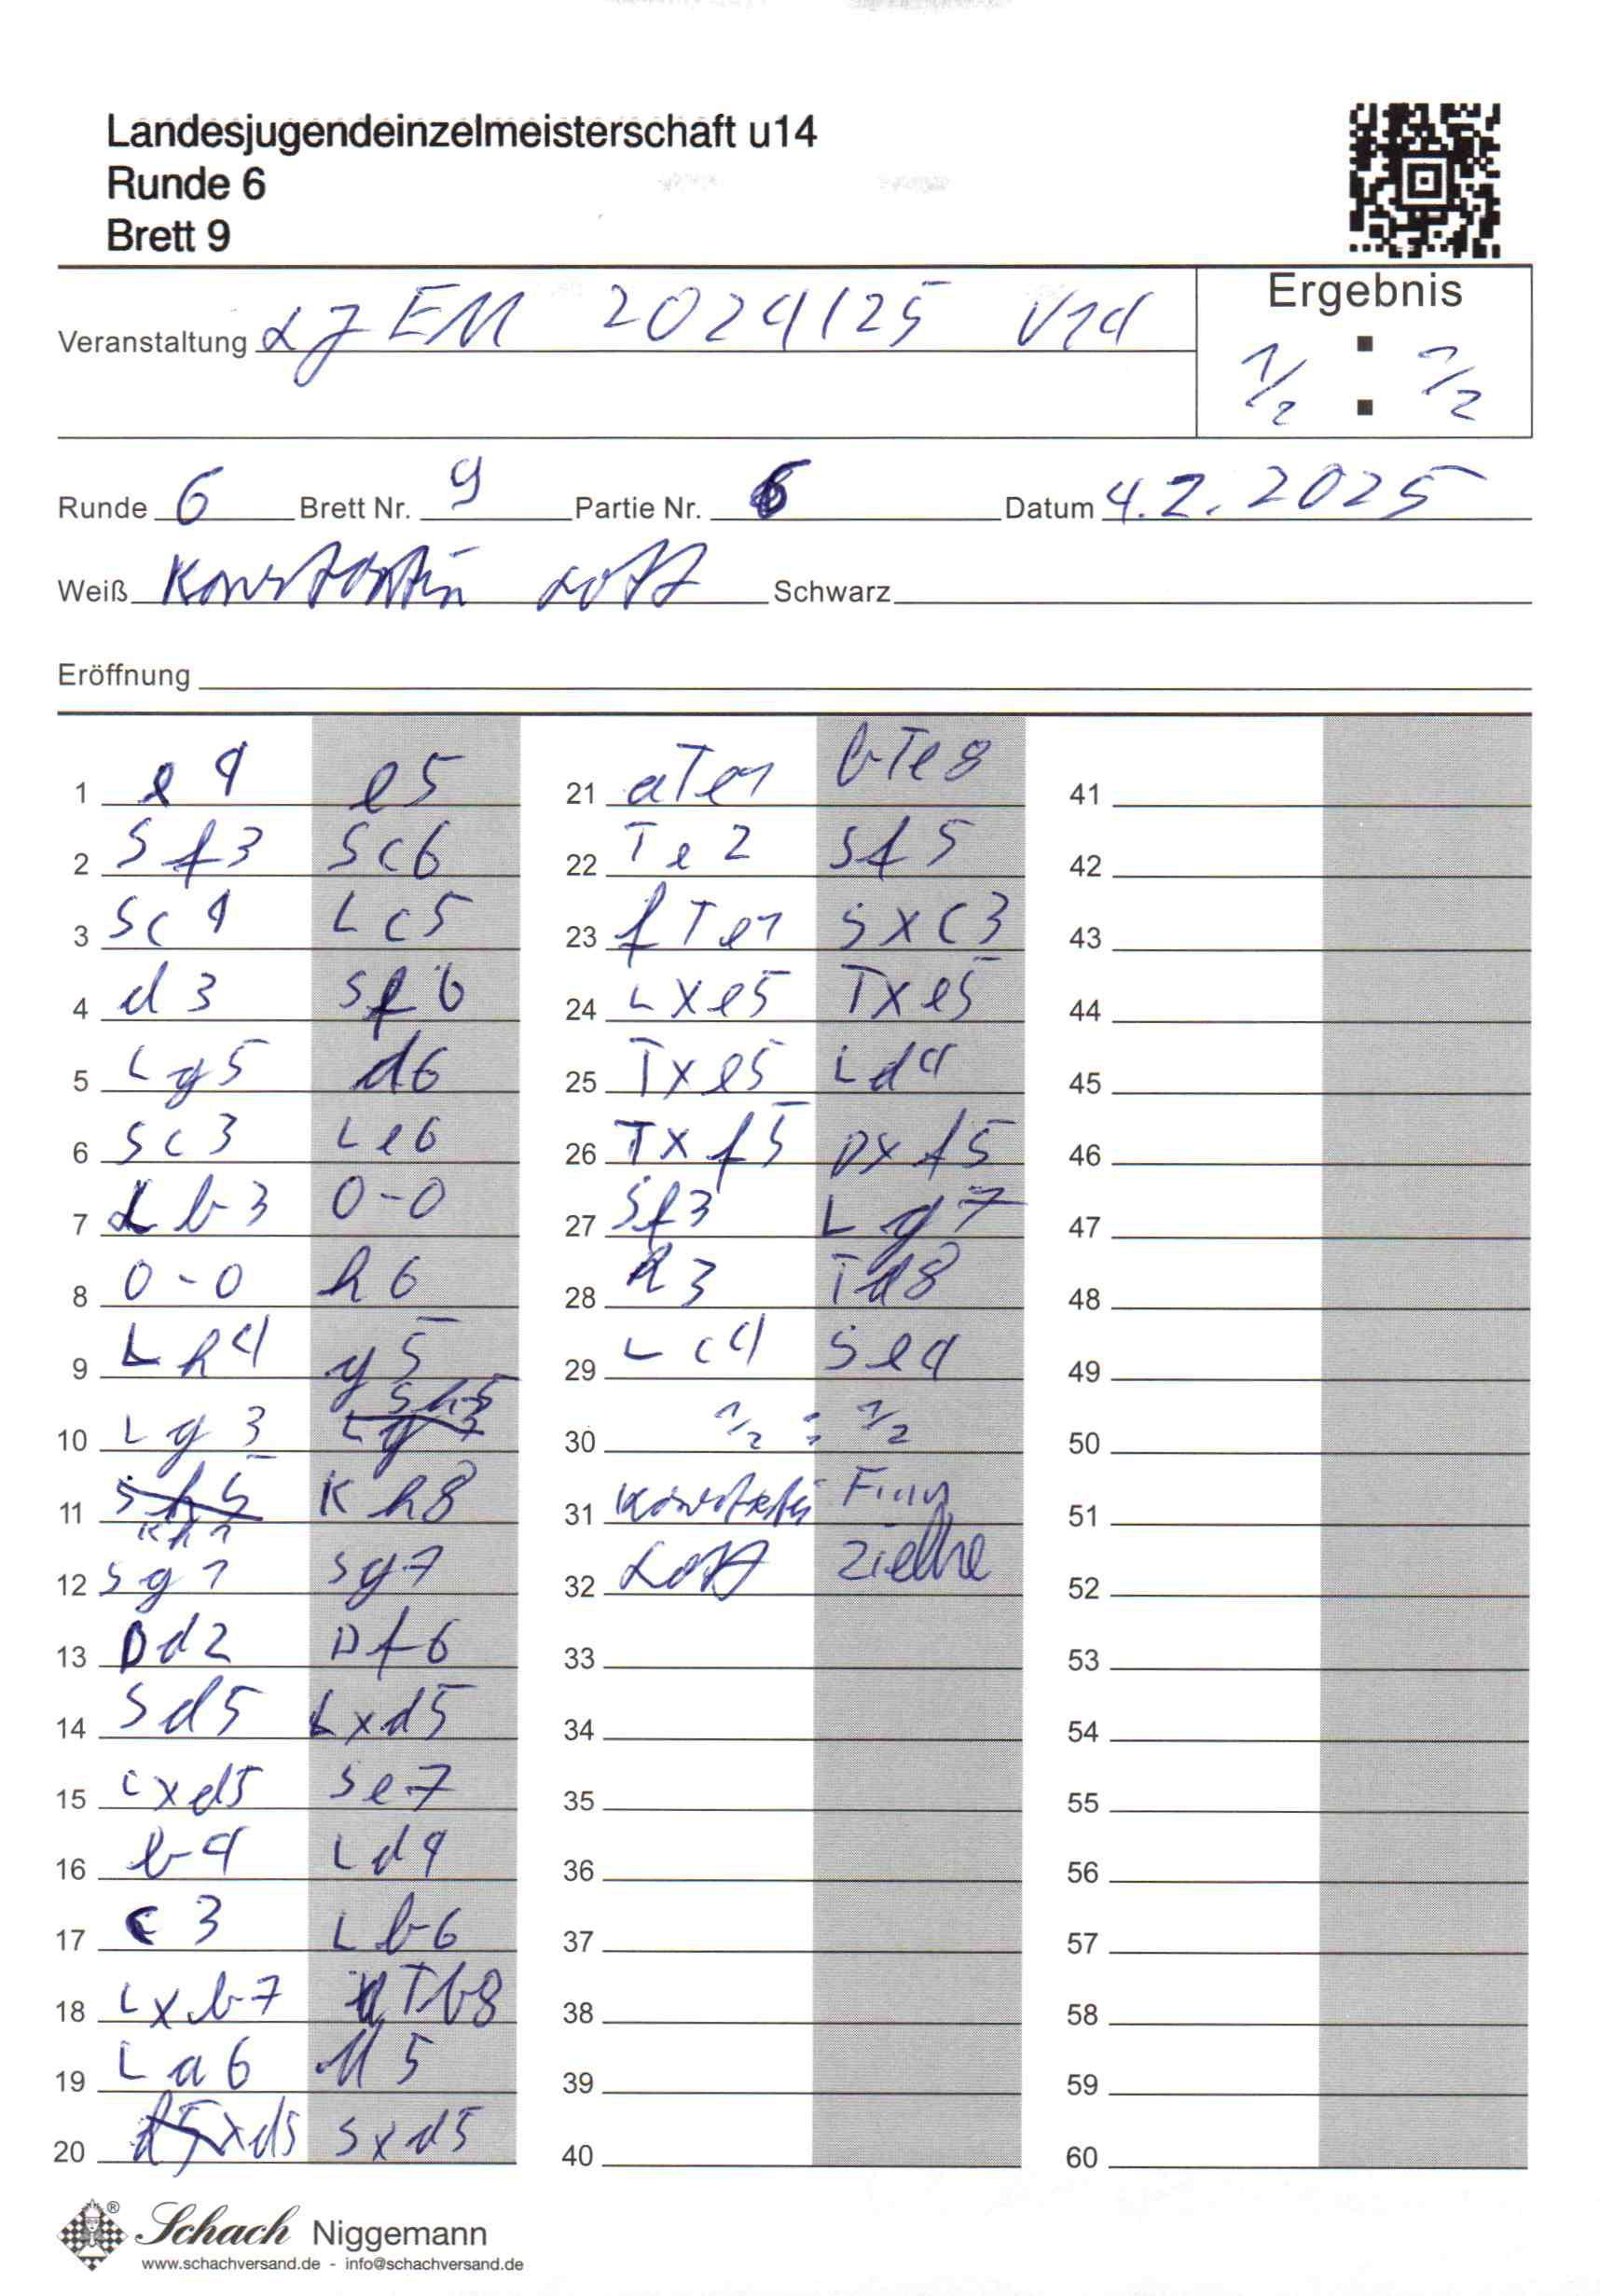 Landesjugendeinzelmeisterschaft u14
Runde 6
Brett 9
Ergebnis
Veranstaltung LJEM 2024/25 U14
1/2 : 1/2
Runde 6 Brett Nr. 9 Partie Nr. 6 Datum 4.2.2025
Weiß Konstantin Lotz Schwarz
Eröffnung
1 e4 e5 21 aTe1 bTe8 41
2 Sf3 Sc6 22 Te2 Sf5 42
3 Sc4 Lc5 23 fTe1 Sxc3 43
4 d3 Sf6 24 Lxe5 Txe5 44
5 Lg5 d6 25 Txe5 Ld4 45
6 Sc3 Le6 26 Txf5 Dxf5 46
7 Lb3 0-0 27 Sf3 Lg7 47
8 0-0 h6 28 h3 Td8 48
9 Lh4 g5 29 Lc4 Se4 49
10 Lg3 Sh5 30 1/2 : 1/2 50
11 Kh1 Kh8 31 Konstantin Finn 51
12 Sg1 Sg7 32 Lotz Zielke 52
13 Dd2 Df6 33 53
14 Sd5 Lxd5 34 54
15 Lxd5 Se7 35 55
16 b4 Ld4 36 56
17 c3 Lb6 37 57
18 Lxb7 aTb8 38 58
19 La6 d5 39 59
20 xd5 Sxd5 40 60
Schach Niggemann
www.schachversand.de - info@schachversand.de